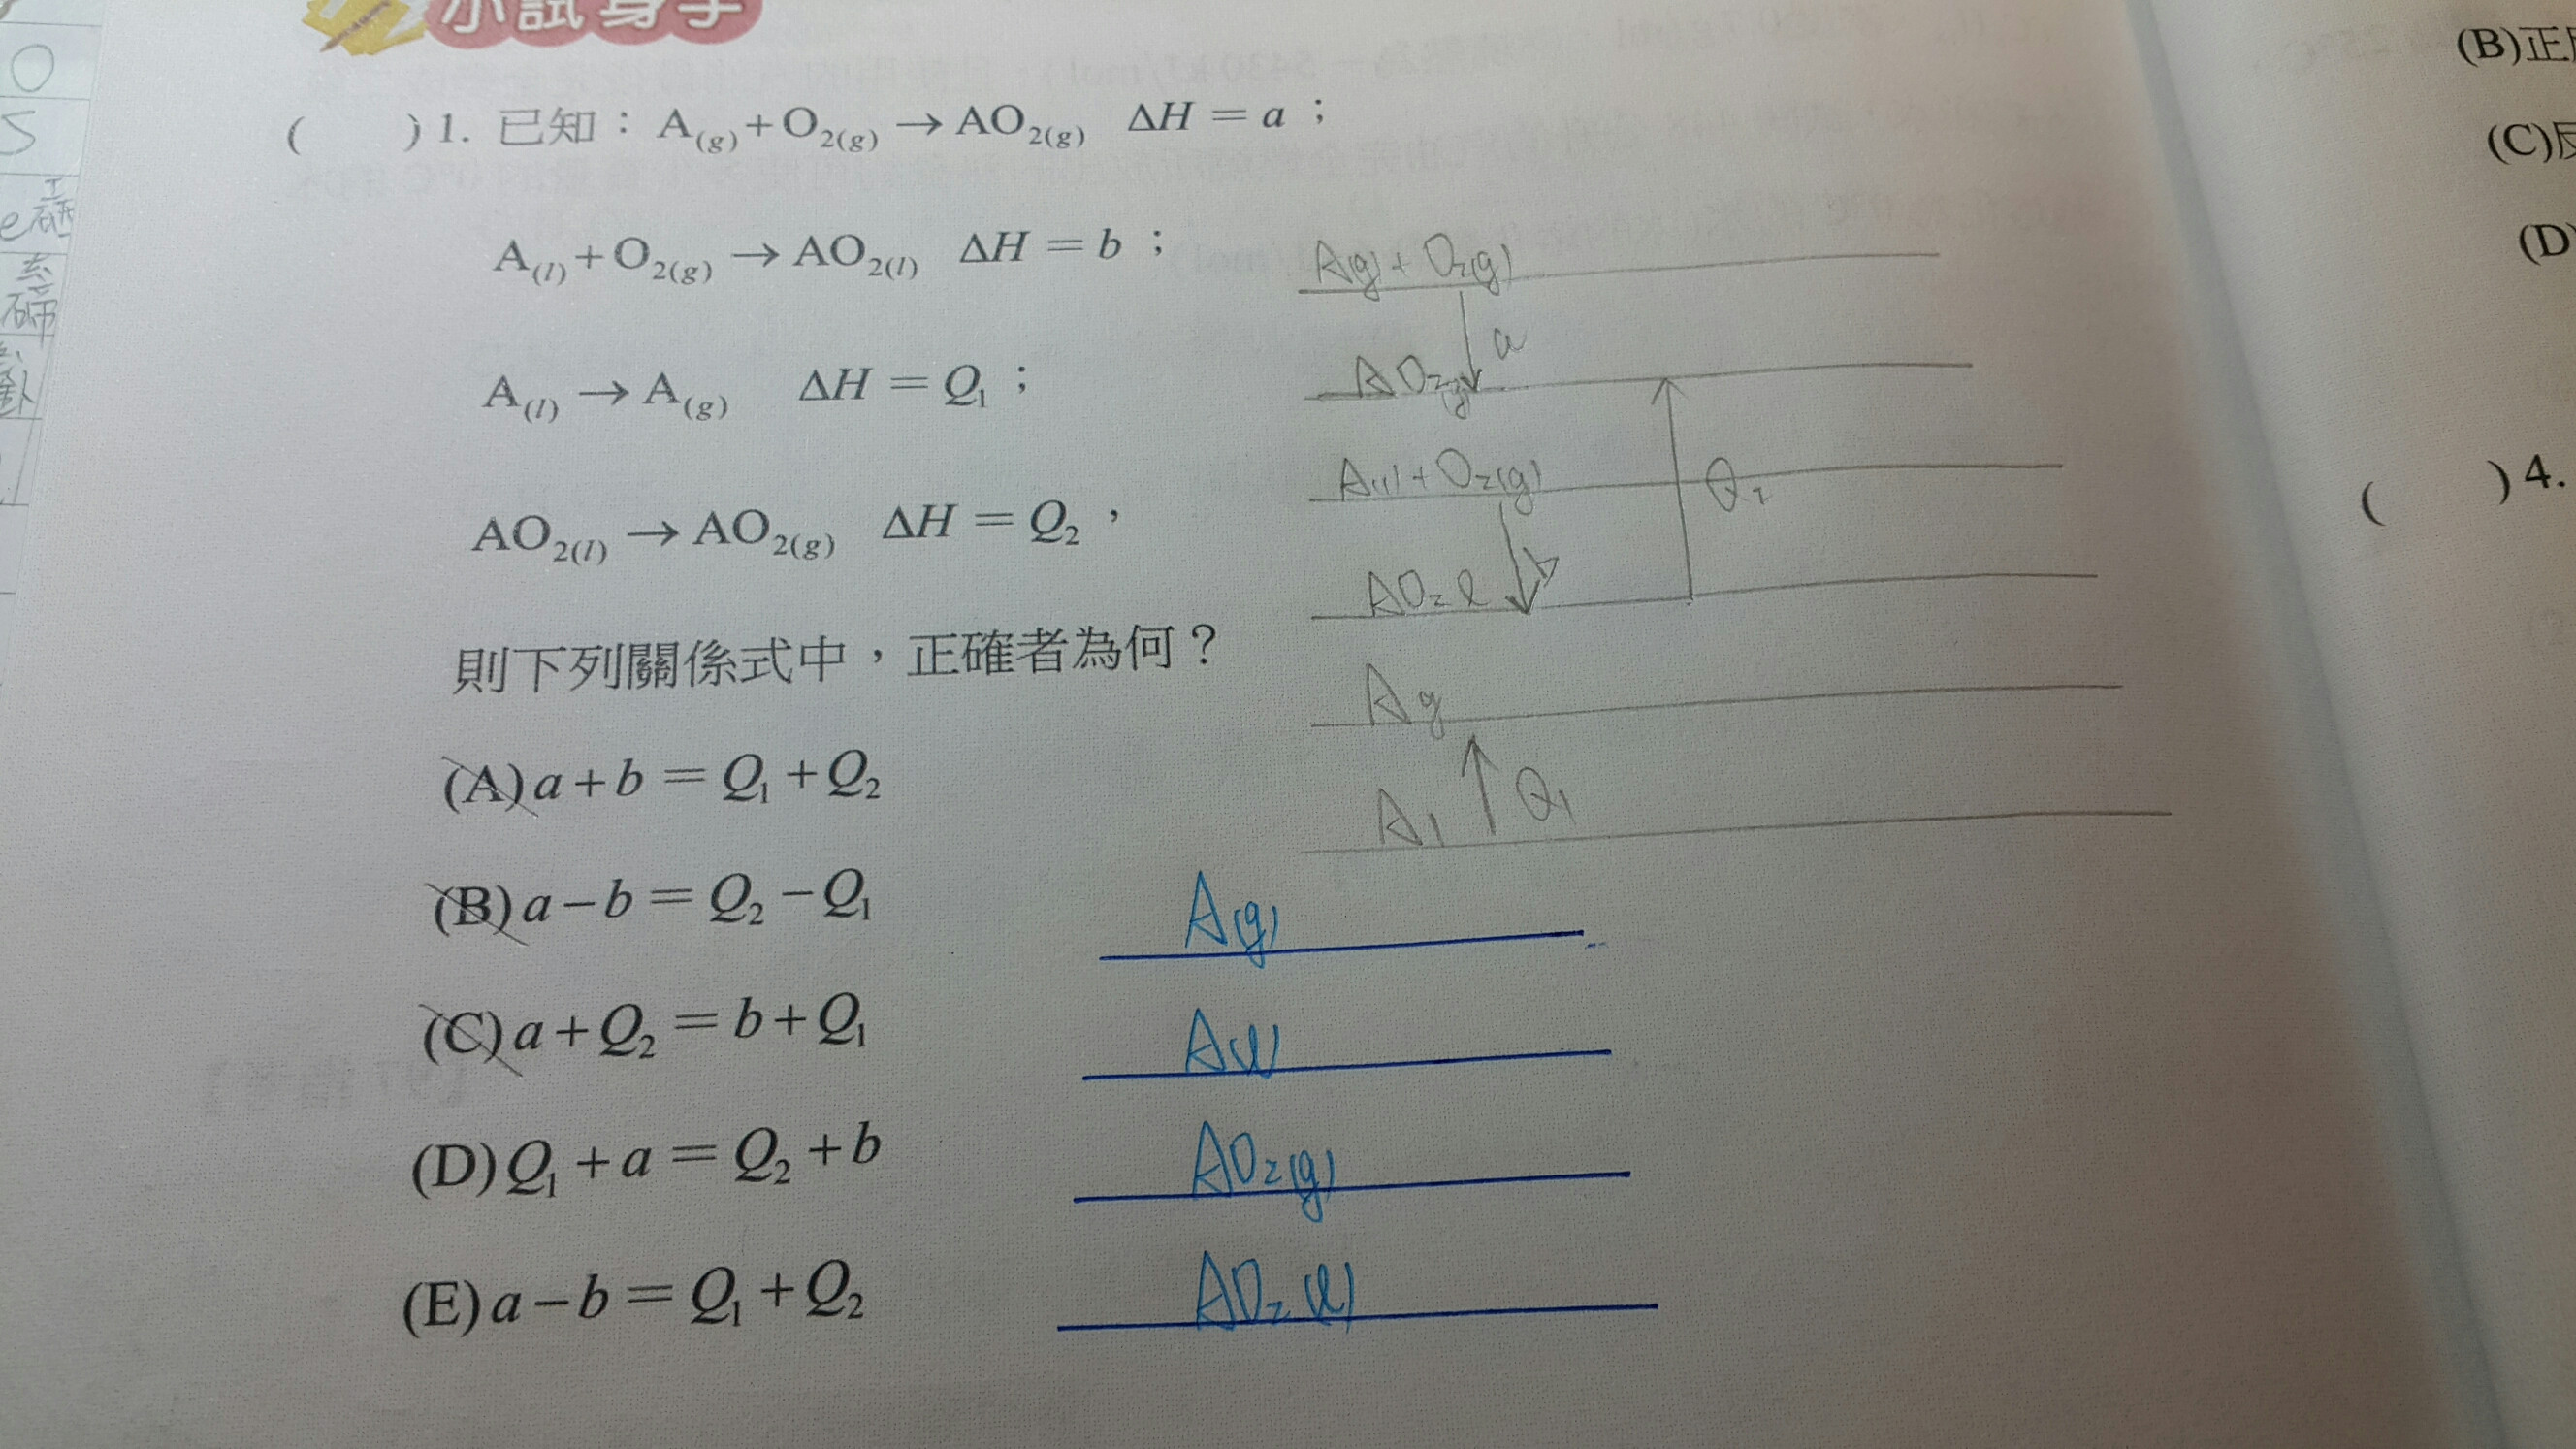 小試身手
( ) 1. 已知：A(g)+O2(g) → AO2(g) ΔH = a；
A(l)+O2(g) → AO2(l) ΔH = b；
A(l) → A(g) ΔH = Q1；
AO2(l) → AO2(g) ΔH = Q2，
則下列關係式中，正確者為何？
(A) a+b = Q1+Q2
(B) a−b = Q2−Q1
(C) a+Q2 = b+Q1
(D) Q1+a = Q2+b
(E) a−b = Q1+Q2
A(g) + O2(g)
a
AO2(g)
A(l) + O2(g)
Q2
b
AO2 l
A g
Q1
A l
A(g)
A(l)
AO2(g)
AO2(l)
O
S
(B)正
(C)
(D)
( ) 4.